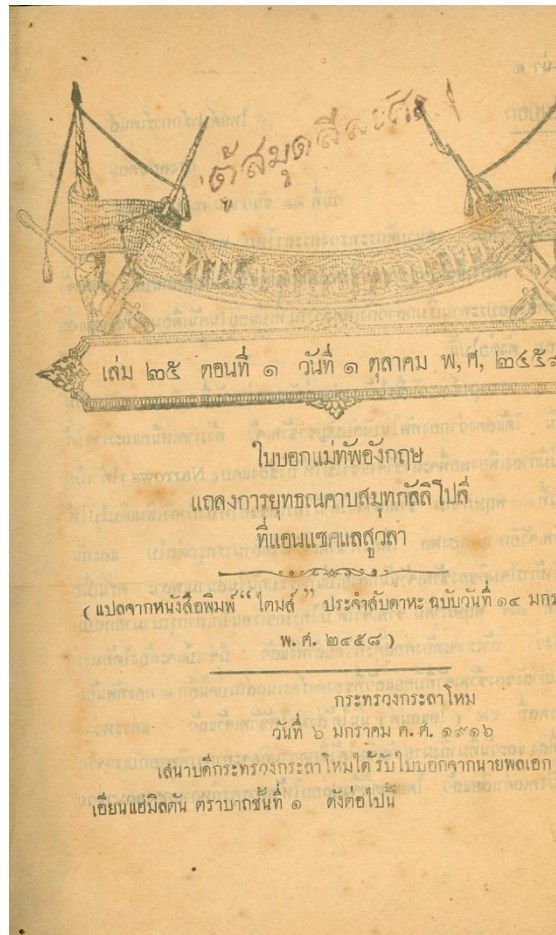 ตู้สมุด
เล่ม ๒๕ ตอนที่ ๑ วันที่ ๑ ตุลาคม พ, ศ, ๒๔๕๙
ใบบอกแม่ทัพอังกฤษ
แถลงการยุทธณคาบสมุทกัลลิโปลี
ที่แอนแซคแลสูวลา
( แปลจากหนังสือพิมพ์ “ ไตมส์ ” ประจำสัปดาหะ ฉบับวันที่ ๑๔ มกร
พ. ศ. ๒๔๕๘ )
กระทรวงกระลาโหม
วันที่ ๖ มกราคม ค. ศ. ๑๙๑๖
เสนาบดีกระทรวงกระลาโหมได้รับใบบอกจากนายพลเอก
เอียนแฮมิลตัน ตราบาถชั้นที่ ๑ ดังต่อไปนี้